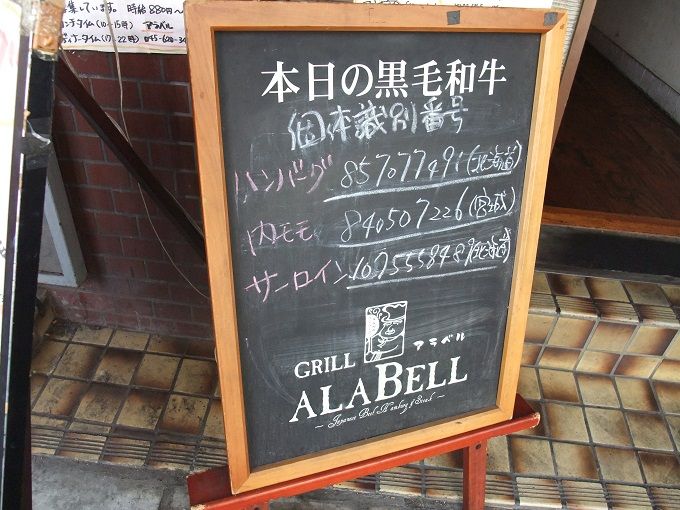 集しています。 時給880円〜
ランチタイム(10〜15時) アラベル
ディナータイム(17〜22時)
本日の黒毛和牛
個体識別番号
ハンバーグ 857077491(北海道)
内モモ 840507226(宮城)
サーロイン 1075558489(北海道)
アラベル
GRILL
ALABELL